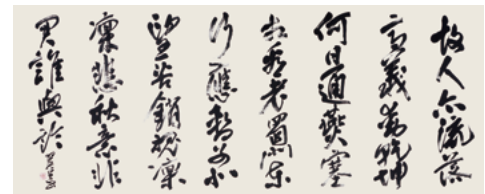 故人亦流落
高義動乾坤
何日通燕塞
相看老蜀門東
行應暫別北
望苦銷魂凜
凜悲秋意非
君誰與論